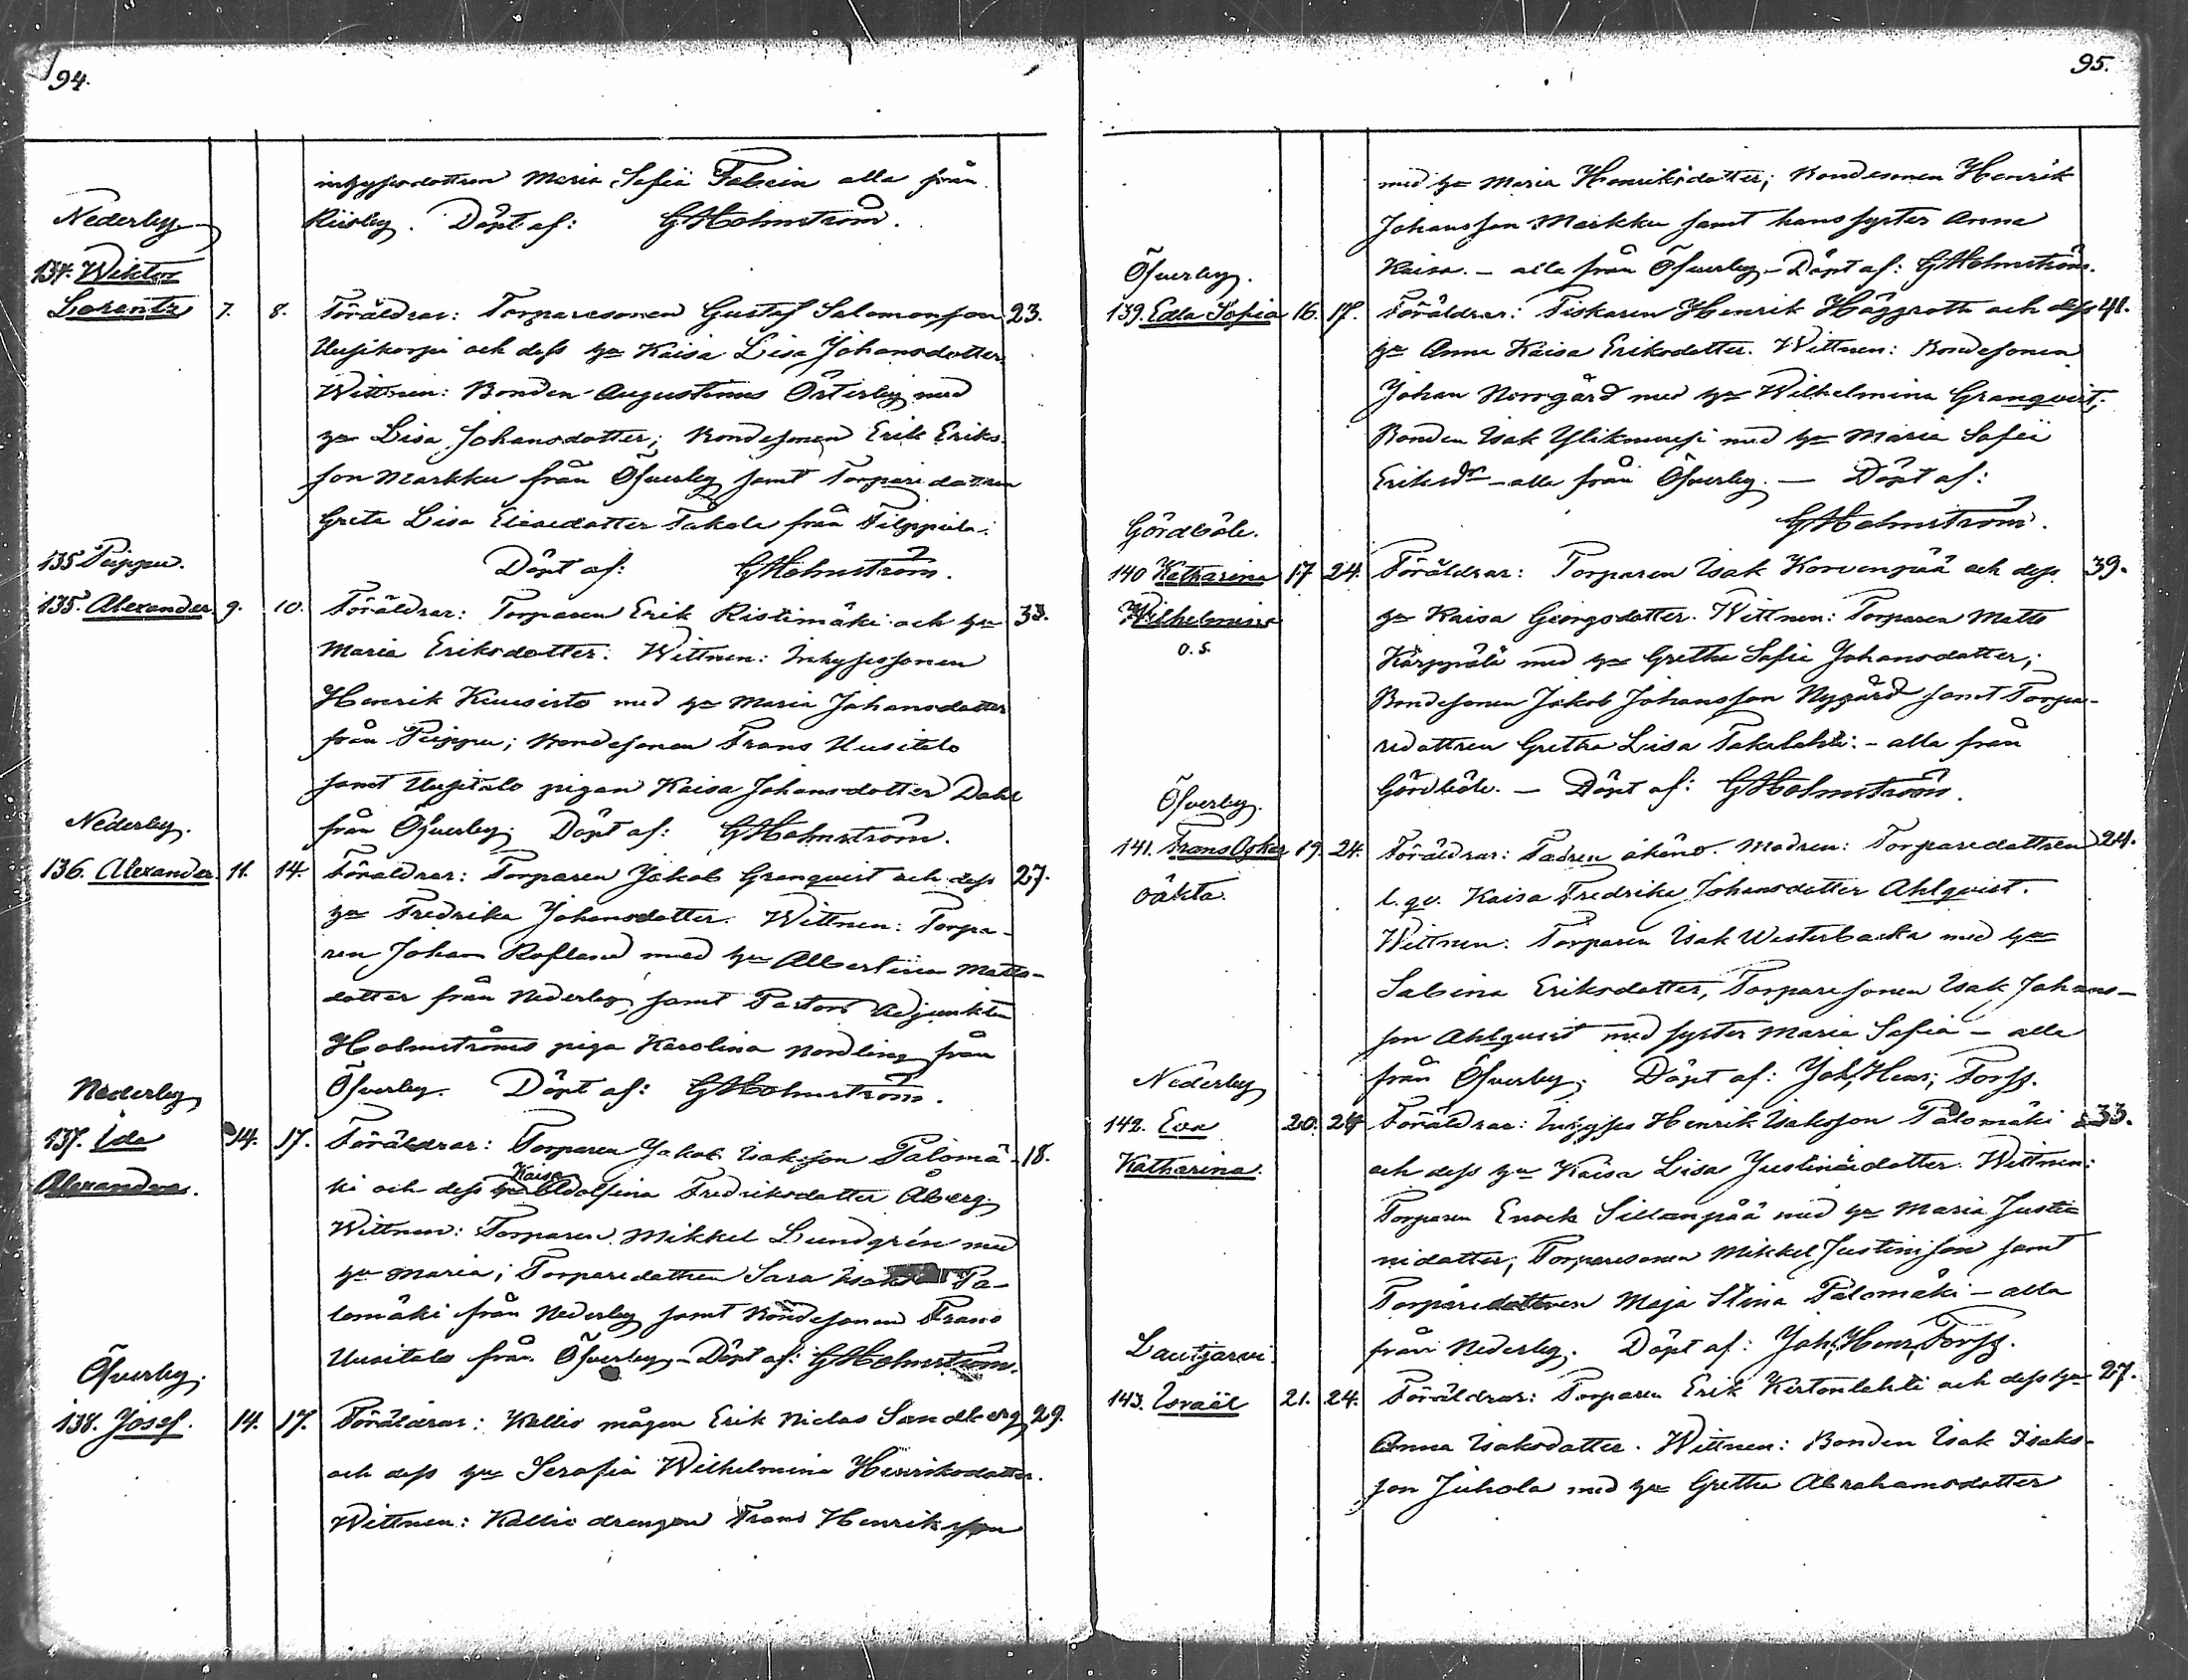 94.
inhysesdottren Maria Sofia Fabein alla från
Riisby. Döpt af: GHolmström.
Nederby
134. Wiktor
Lorentz 7. 8. Föräldrar: Torparesonen Gustaf Salomonsson 23.
Uusikorpi och dess hu Kaisa Lisa Johansdotter
Wittnen: Bonden Augustinus Österby med
hu Lisa Johansdotter; Bondesonen Erik Eriks
son Markku från Öfverby samt Torparedottren
Greta Lisa Eliaedotter Takala från Filppula.
135 Piippu. Döpt af: GHolmström.
135. Alexander 9. 10. Föräldrar: Torparen Erik Ristimäki och hu 33.
Maria Eriksdotter. Wittnen: Inhysessonen
Henrik Kuusisto med hu Maria Johansdotter
från Piippu; Bondesonen Frans Uusitalo
samt Uusitalo pigan Kaisa Johansdotter Dahl
Nederby. från Öfverby. Döpt af: GHolmström.
136. Alexander 11. 14. Föräldrar: Torparen Jakob Granquist och dess 27.
hu Fredrika Johansdotter. Wittnen: Torpa-
ren Johan Rofland med hu Albertina Matts-
dotter från Nederby, samt Pastors Adjunkten
Holmströms piga Karolina Nordling från
Nederby Öfverby. Döpt af: GHolmström.
137. Ida 14. 17. Föräldrar: Torparen Jakob Isaksson Palomä- 18.
Alexandra. ki och dess hu Kaisa Adolfina Fredriksdotter Åberg.
Wittnen: Torparen Mikkel Lundgrén med
hu Maria; Torparedottren Sara Pa-
lomäki från Nederby samt Bondesonen Frans
Uusitalo från Öfverby. - Döpt af: GHolmström.
Öfverby.
138. Josef. 14. 17. Föräldrar: Kallio mågen Erik Niclas Sandberg 29.
och dess hu Serafia Wilhelmina Henriksdotter.
Wittnen: Kallio drengen Frans Henriksson
95.
med hu Maria Henriksdotter; Bondesonen Henrik
Johansson Markku samt hans syster Anna
Öfverby. Kaisa. - alla från Öfverby - Döpt af: GHolmström.
139. Edla Sofia 16. 17. Föräldrar: Fiskaren Henrik Häggroth och dess 41.
hu Anna Kaisa Eriksdotter. Wittnen: Bondesonen
Johan Norrgård med hu Wilhelmina Granqvist;
Bonden Isak Ylikmursi med hu Maria Sofii
Eriksdr - alla från Öfverby. — Döpt af:
Gördböle. GHolmström.
140 Katharina 17 24. Föräldrar: Torparen Isak Korvenpää och dess 39.
Wilhelmina hu Kaisa Georgsdotter. Wittnen: Torparen Matts
o. s. Kärppälä med hu Gretha Sofia Johansdotter;
Bondesonen Jakob Johansson Nygård samt Torpa-
redottren Gretha Lisa Takalahti: - alla från
Öfverby. Gördböle. — Döpt af: GHolmström.
141. Frans Oskar 19. 24. Föräldrar: Fadren okänd. Modren: Torparedottren 24.
oäkta. l. qv. Kaisa Fredrika Johansdotter Ahlqvist.
Wittnen: Torparen Isak Westerbacka med hu
Sabina Eriksdotter, Torparesonen Isak Johans-
son Ahlqvist med syster Maria Sofia - alla
Nederby från Öfverby. Döpt af: Joh. Henr. Forss.
142. Eva 20. 24 Föräldrar: Inhyses Henrik Isaksson Palomäki 33.
Katharina. och dess hu Kaisa Lisa Justinidotter. Wittnen:
Torparen Enock Sillanpää med hu Maria Justi-
nidotter, Torparesonen Mikkel Justinisson samt
Torparedottren Maja Stina Palomäki - alla
Lautjärvi från Nederby. Döpt af: Joh. Henr. Forss.
143. Israël 21. 24. Föräldrar: Torparen Erik Kertonlahti och dess hu 27.
Anna Isaksdotter. Wittnen: Bonden Isak Isaks-
son Juhola med hu Gretha Abrahamsdotter